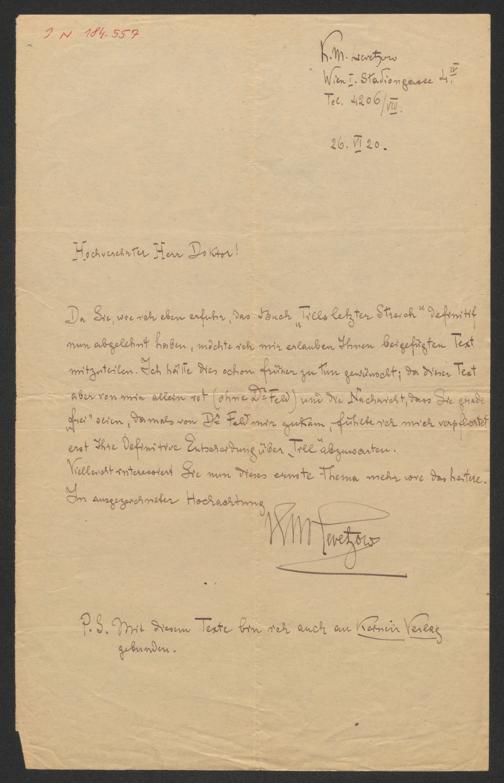 I N 184.557
K. M. Levetzow
Wien I. Stadiongasse 4. IV
Tel. 4206/VIII.
26. VI 20.
Hochverehrter Herr Doktor!
Da Sie, wie ich eben erfuhr, das Buch „Tills letzter Streich“ definitif
nun abgelehnt haben, möchte ich mir erlauben Ihnen beigefügten Text
mitzuteilen. Ich hätte dies schon früher zu tun gewünscht; da dieser Text
aber von mir allein ist (ohne Dr Feld) und die Nachricht, dass Sie grade
„frei“ seien, damals von Dr Feld mir zukam, fühlte ich mich verpflichtet
erst Ihre definitive Entscheidung über „Till“ abzuwarten.
Vielleicht interessiert Sie nun dieses ernste Thema mehr wie das heitere.
In ausgezeichneter Hochachtung
KMLevetzow
P. S. Mit diesem Texte bin ich auch an Verlag
gebunden.